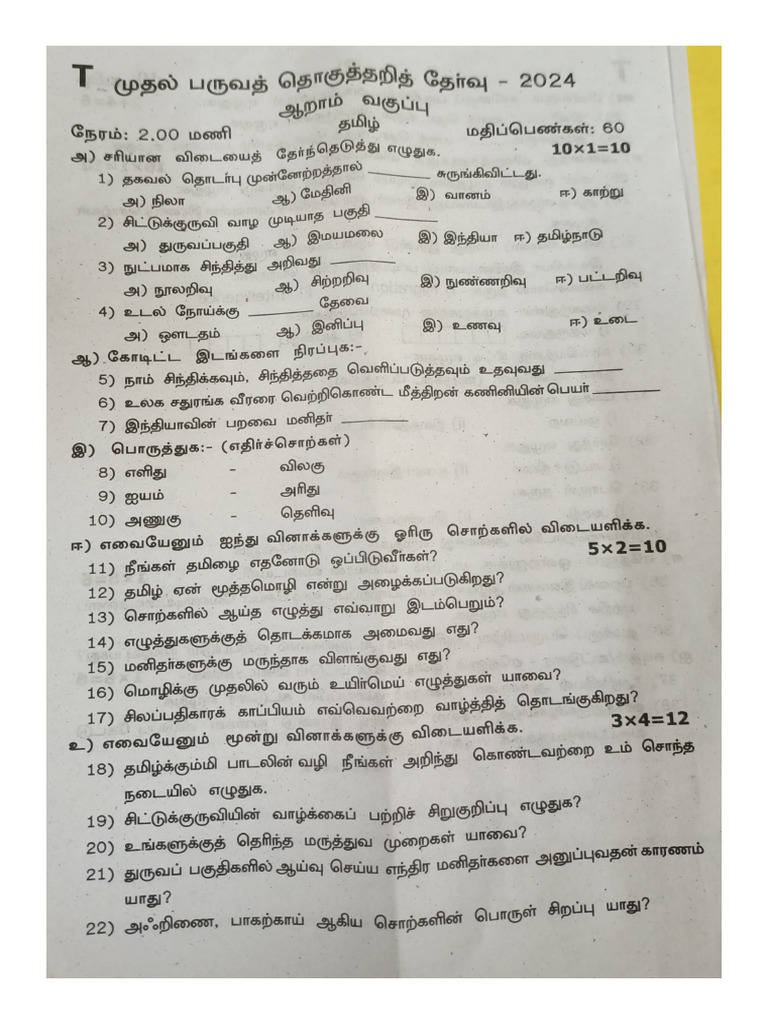 T முதல் பருவத் தொகுத்தறித் தேர்வு - 2024
ஆறாம் வகுப்பு
தமிழ்
நேரம்: 2.00 மணி மதிப்பெண்கள்: 60
அ) சரியான விடையைத் தேர்ந்தெடுத்து எழுதுக. 10×1=10
1) தகவல் தொடர்பு முன்னேற்றத்தால் ________ சுருங்கிவிட்டது.
அ) நிலா ஆ) மேதினி இ) வானம் ஈ) காற்று
2) சிட்டுக்குருவி வாழ முடியாத பகுதி ________
அ) துருவப்பகுதி ஆ) இமயமலை இ) இந்தியா ஈ) தமிழ்நாடு
3) நுட்பமாக சிந்தித்து அறிவது ________
அ) நூலறிவு ஆ) சிற்றறிவு இ) நுண்ணறிவு ஈ) பட்டறிவு
4) உடல் நோய்க்கு ________ தேவை
அ) ஔடதம் ஆ) இனிப்பு இ) உணவு ஈ) உடை
ஆ) கோடிட்ட இடங்களை நிரப்புக:-
5) நாம் சிந்திக்கவும், சிந்தித்ததை வெளிப்படுத்தவும் உதவுவது ________
6) உலக சதுரங்க வீரரை வெற்றிகொண்ட மீத்திறன் கணினியின் பெயர் ________
7) இந்தியாவின் பறவை மனிதர் ________
இ) பொருத்துக:- (எதிர்ச்சொற்கள்)
8) எளிது - விலகு
9) ஐயம் - அரிது
10) அணுகு - தெளிவு
ஈ) எவையேனும் ஐந்து வினாக்களுக்கு ஓரிரு சொற்களில் விடையளிக்க.
5×2=10
11) நீங்கள் தமிழை எதனோடு ஒப்பிடுவீர்கள்?
12) தமிழ் ஏன் மூத்தமொழி என்று அழைக்கப்படுகிறது?
13) சொற்களில் ஆய்த எழுத்து எவ்வாறு இடம்பெறும்?
14) எழுத்துகளுக்குத் தொடக்கமாக அமைவது எது?
15) மனிதர்களுக்கு மருந்தாக விளங்குவது எது?
16) மொழிக்கு முதலில் வரும் உயிர்மெய் எழுத்துகள் யாவை?
17) சிலப்பதிகாரக் காப்பியம் எவ்வெவற்றை வாழ்த்தித் தொடங்குகிறது?
உ) எவையேனும் மூன்று வினாக்களுக்கு விடையளிக்க. 3×4=12
18) தமிழ்க்கும்மி பாடலின் வழி நீங்கள் அறிந்து கொண்டவற்றை உம் சொந்த
நடையில் எழுதுக.
19) சிட்டுக்குருவியின் வாழ்க்கைப் பற்றிச் சிறுகுறிப்பு எழுதுக?
20) உங்களுக்குத் தெரிந்த மருத்துவ முறைகள் யாவை?
21) துருவப் பகுதிகளில் ஆய்வு செய்ய எந்திர மனிதர்களை அனுப்புவதன் காரணம்
யாது?
22) அஃறிணை, பாகற்காய் ஆகிய சொற்களின் பொருள் சிறப்பு யாது?